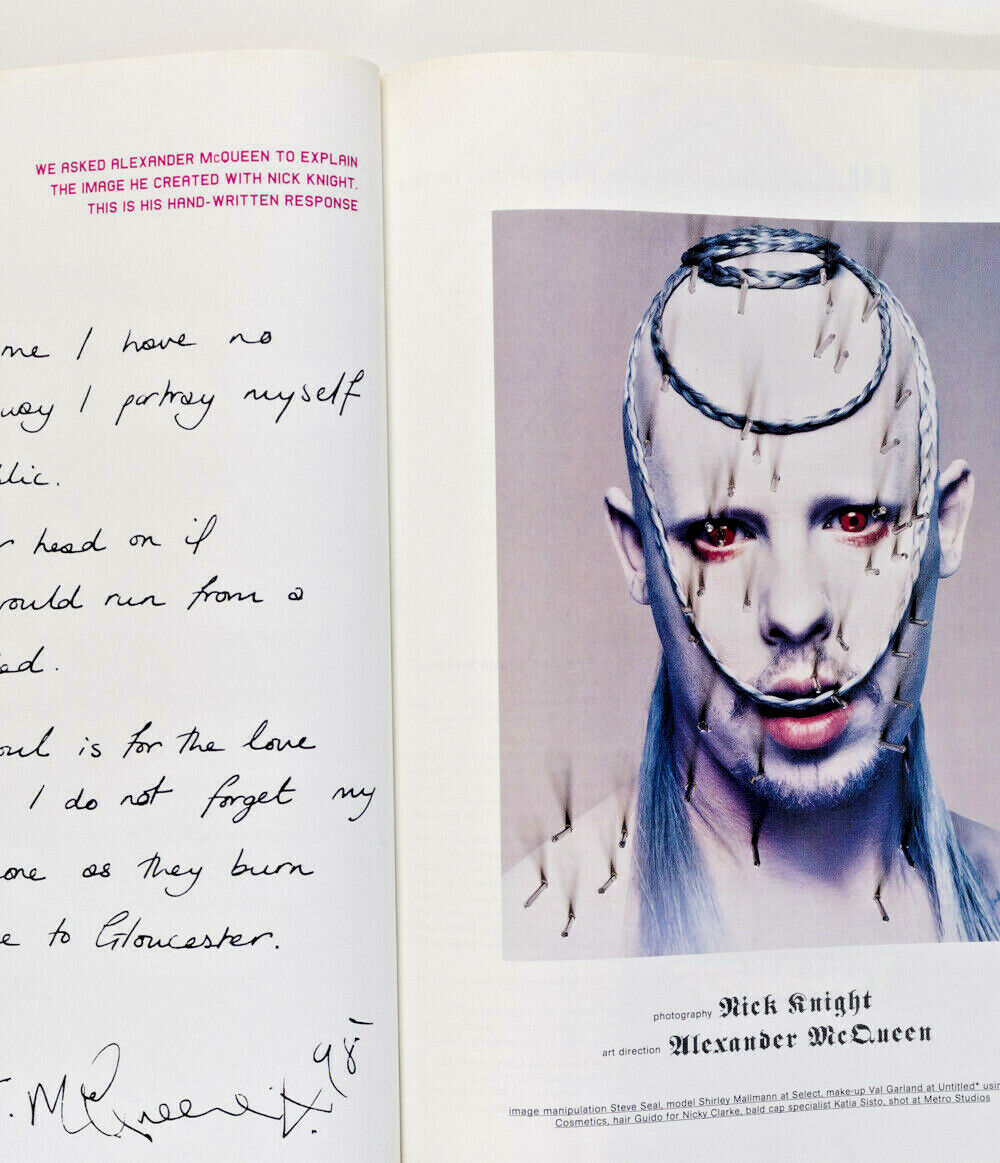 WE ASKED ALEXANDER McQUEEN TO EXPLAIN
THE IMAGE HE CREATED WITH NICK KNIGHT.
THIS IS HIS HAND-WRITTEN RESPONSE
me I have no
way I portray myself
blic.
head on if
would run from a
is for the love
I do not forget my
one as they burn
e to Gloucester.
McQueen 98
photography Nick Knight
art direction Alexander McQueen
image manipulation Steve Seal, model Shirley Mallmann at Select, make-up Val Garland at Untitled* usin
Cosmetics, hair Guido for Nicky Clarke, bald cap specialist Katia Sisto, shot at Metro Studios